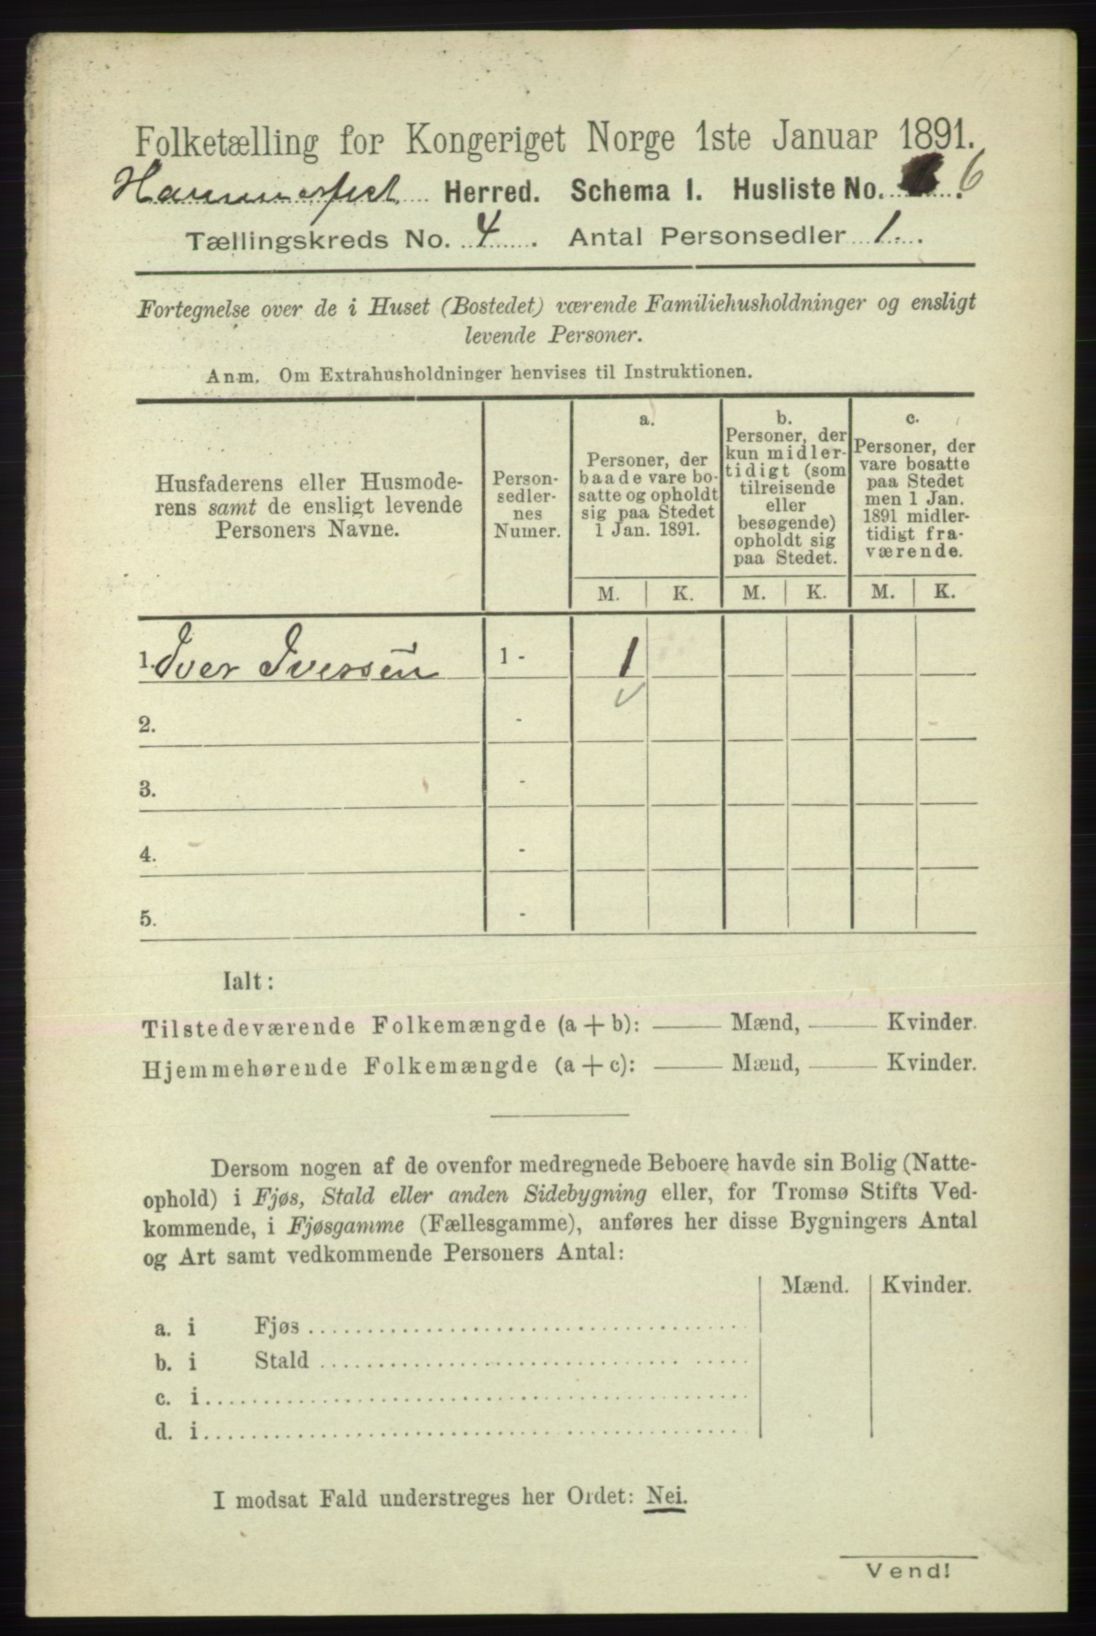 Folketælling for Kongeriget Norge 1ste Januar 1891.
Hammerfest Herred. Schema I. Husliste No. 6.
Tællingskreds No. 4. Antal Personsedler 1.
Fortegnelse over de i Huset (Bostedet) værende Familiehusholdninger og ensligt
levende Personer.
Anm. Om Extrahusholdninger henvises til Instruktionen.
Husfaderens eller Husmode-
rens samt de ensligt levende
Personers Navne.
Person-
sedler-
nes
Numer.
a.
Personer, der
baade vare bo-
satte og opholdt
sig paa Stedet
1 Jan. 1891.
b.
Personer, der
kun midler-
tidigt (som
tilreisende
eller
besøgende)
opholdt sig
paa Stedet.
c.
Personer, der
vare bosatte
paa Stedet
men 1 Jan.
1891 midler-
tidigt fra-
værende.
M. K. M. K. M. K.
1. Iver Iversen 1 - 1
2. -
3. -
4. -
5. -
Ialt:
Tilstedeværende Folkemængde (a + b): —— Mænd, —— Kvinder.
Hjemmehørende Folkemængde (a + c): —— Mænd, —— Kvinder.
Dersom nogen af de ovenfor medregnede Beboere havde sin Bolig (Natte-
ophold) i Fjøs, Stald eller anden Sidebygning eller, for Tromsø Stifts Ved-
kommende, i Fjøsgamme (Fællesgamme), anføres her disse Bygningers Antal
og Art samt vedkommende Personers Antal:
Mænd. Kvinder.
a. i Fjøs
b. i Stald
c. i
d. i
I modsat Fald understreges her Ordet: Nei.
Vend!